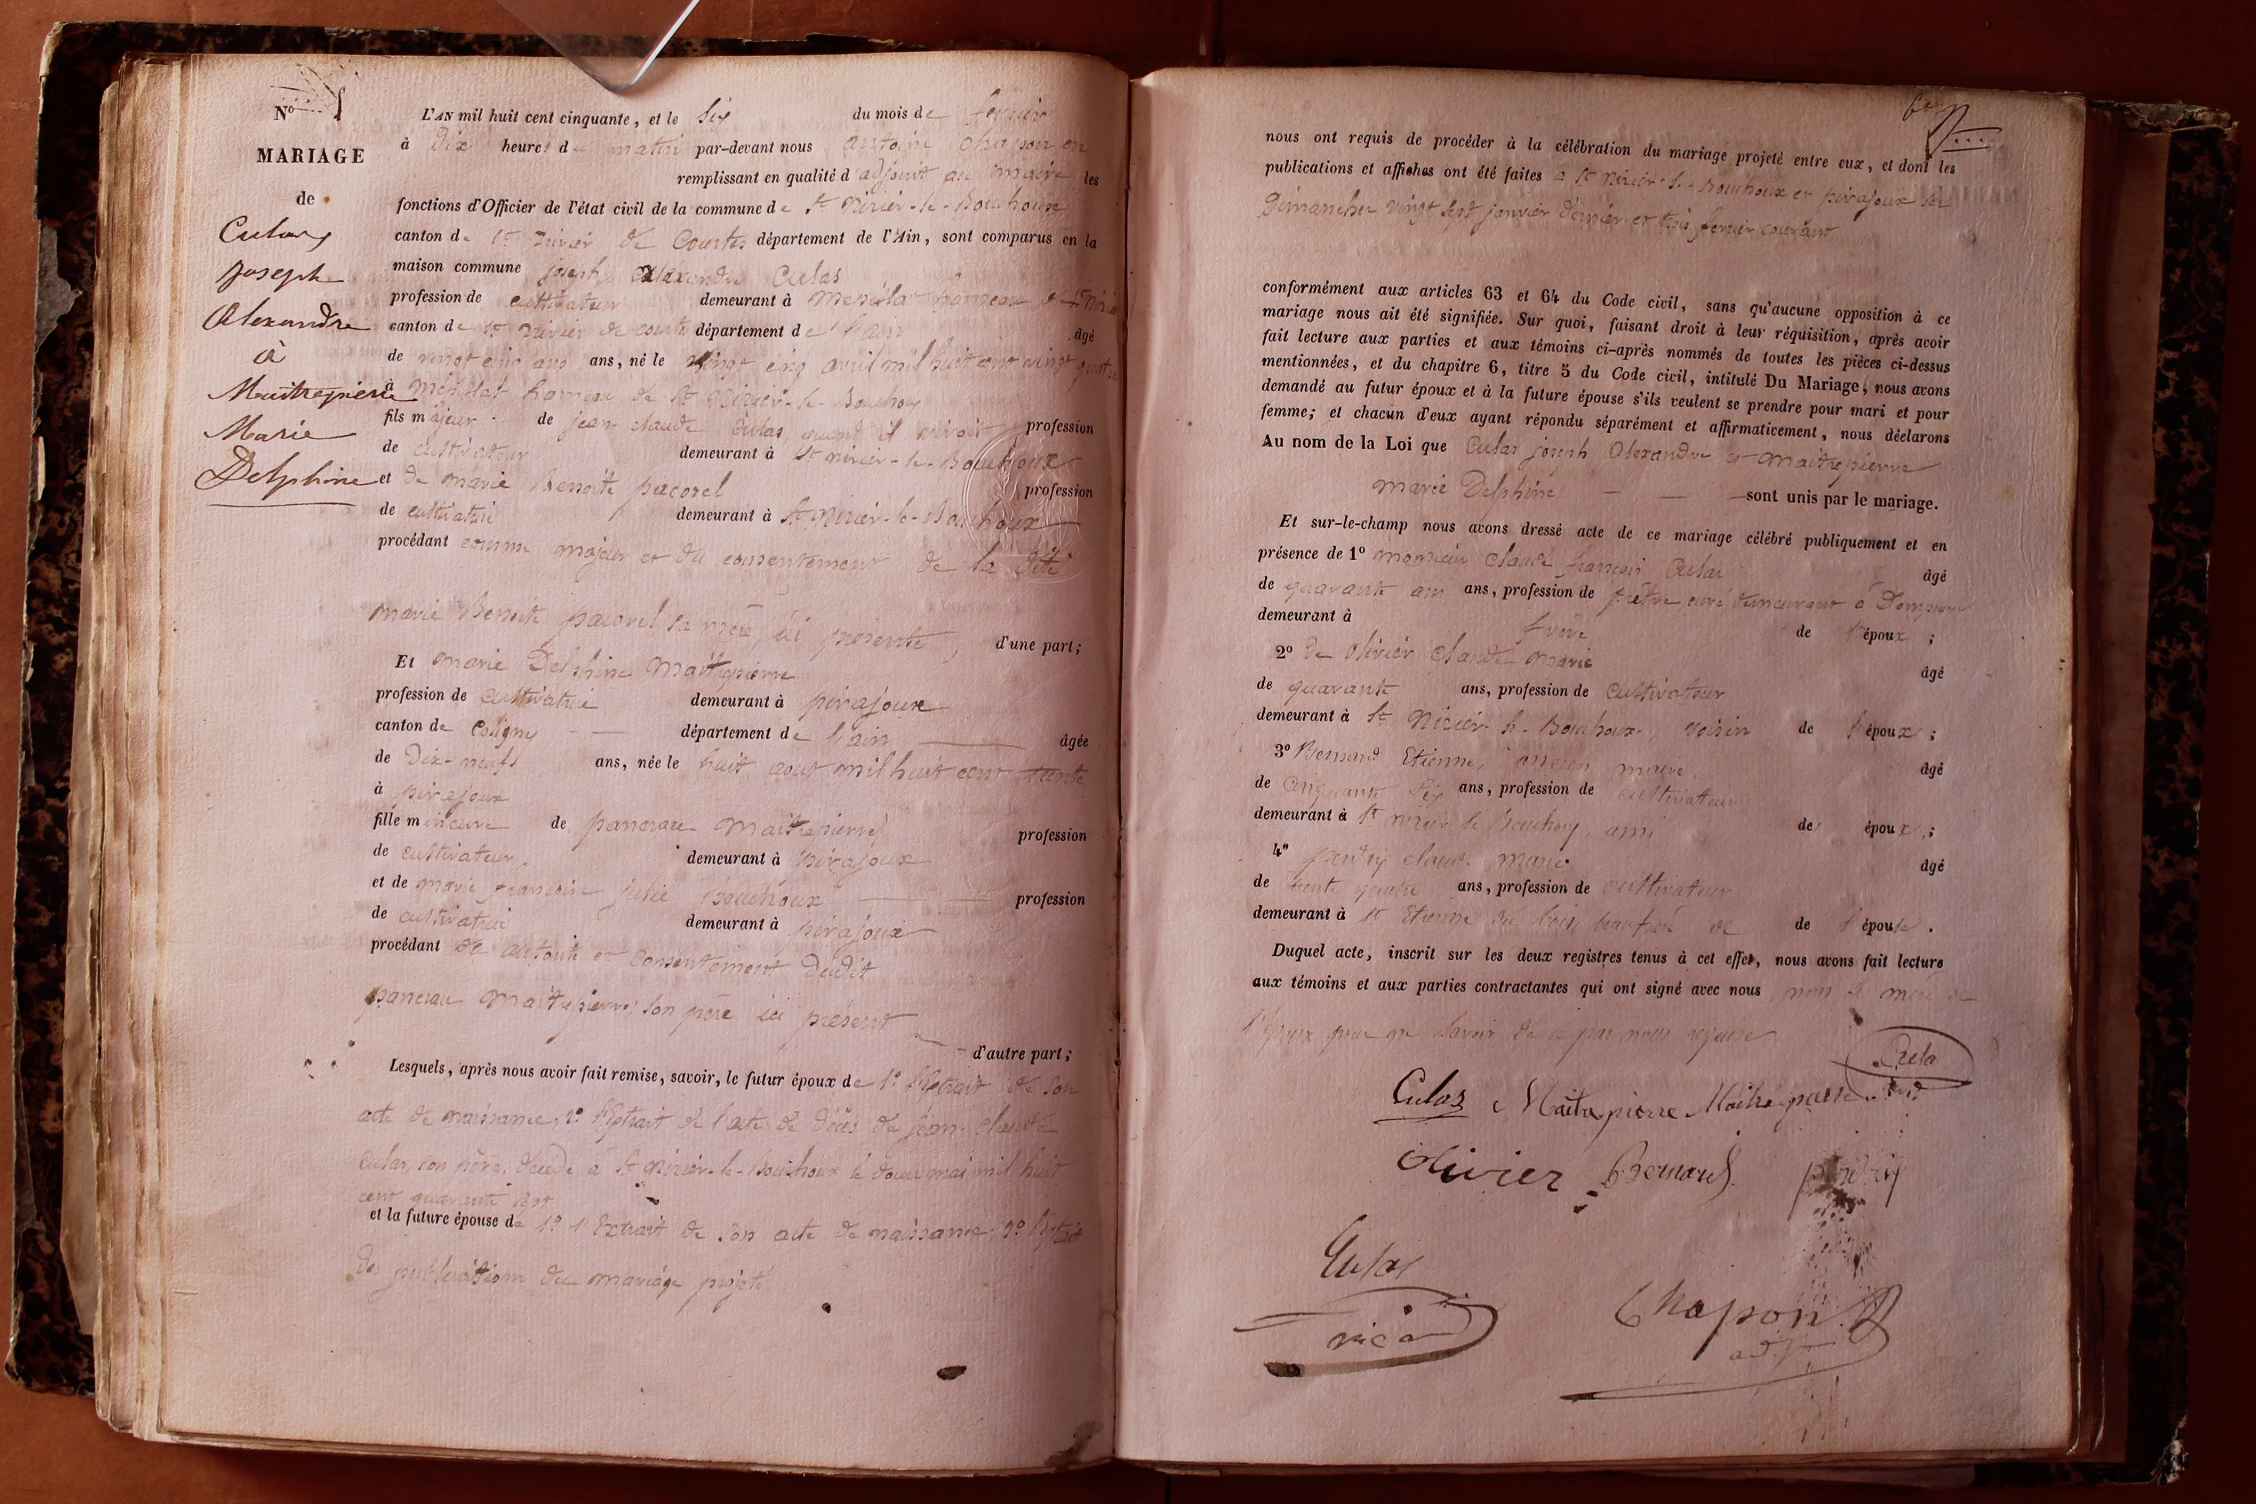 No 5
MARIAGE
de
Culas
Joseph
Alexandre
à
Maitrepierre
Marie
Delphine
L'AN mil huit cent cinquante, et le six du mois de fevrier
à Dix heures du matin par-devant nous antoine Chapon en
remplissant en qualité d'adjoint au maire les
fonctions d'Officier de l'état civil de la commune de St Nizier-le-Bouchoux
canton de St trivier de Courtes département de l'Ain, sont comparus en la
maison commune joseph alexandre Culas
profession de cultivateur demeurant à hameau de St
canton de St trivier de courtes département de l'ain âgé
de vingt cinq ans ans, né le vingt cinq avril mil huit cent vingt quatre
à hameau de St Nizier-le-Bouchoux
fils majeur de jean claude Culas, quand il vivait profession
de cultivateur demeurant à St nizier-le-Bouchoux
et de marie Benoite pacorel profession
de cultivatrice demeurant à St Nizier-le-Bouchoux
procédant comme majeur et du consentement de la dite
marie Benoite pacorel sa mère, ici présente, d'une part;
Et marie Delphine Maitrepierre
profession de cultivatrice demeurant à pirajoux
canton de Coligny département de l'ain âgée
de Dix-neufs ans, née le huit aout mil huit cent trente
à pirajoux
fille mineure de pancrace Maitrepierre profession
de cultivateur demeurant à pirajoux
et de marie francoise julie Bouchoux profession
de cultivatrice demeurant à pirajoux
procédant de autorité et consentement dudit
pancrace Maitrepierre son père ici présent
d'autre part;
Lesquels, après nous avoir fait remise, savoir, le futur époux de 1o l'Extrait de son
acte de naissance, 2o l'Extrait de l'acte de décès de jean-claude
Culas, son père, décédé à St Nizier-le-Bouchoux le douze mai mil huit
cent quarante sept
et la future épouse de 1o l'Extrait de son acte de naissance, 2o l'Extrait
des publications du mariage projeté
nous ont requis de procéder à la célébration du mariage projeté entre eux, et dont les
publications et affiches ont été faites à St Nizier-le-Bouchoux et pirajoux les
Dimanches vingt sept janvier dernier et trois fevrier courant
conformément aux articles 63 et 64 du Code civil, sans qu'aucune opposition à ce
mariage nous ait été signifiée. Sur quoi, faisant droit à leur réquisition, après avoir
fait lecture aux parties et aux témoins ci-après nommés de toutes les pièces ci-dessus
mentionnées, et du chapitre 6, titre 5 du Code civil, intitulé Du Mariage, nous avons
demandé au futur époux et à la future épouse s'ils veulent se prendre pour mari et pour
femme; et chacun d'eux ayant répondu séparément et affirmativement, nous déclarons
Au nom de la Loi que Culas joseph Alexandre et Maitrepierre
marie Delphine sont unis par le mariage.
Et sur-le-champ nous avons dressé acte de ce mariage célébré publiquement et en
présence de 1o monsieur Claude françois Culas âgé
de quarante ans ans, profession de prêtre curé demeurant à
demeurant à frère de l'époux;
2o de Olivier claude marie âgé
de quarante ans, profession de cultivateur
demeurant à St Nizier le-Bouchoux, voisin de l'époux;
3o Bernard Etienne, ancien maire âgé
de Cinquante six ans, profession de cultivateur
demeurant à St nizier le Bouchoux, ami de époux;
4o claude marie âgé
de trente quatre ans, profession de cultivateur
demeurant à St Etienne du Bois, beaufrère de de l'épouse.
Duquel acte, inscrit sur les deux registres tenus à cet effet, nous avons fait lecture
aux témoins et aux parties contractantes qui ont signé avec nous non la mère de
l'époux pour ne savoir de ce par nous requise
Culas Maitrepierre Maitrepierre
Olivier Bernard
Culas
Chapon
adjt